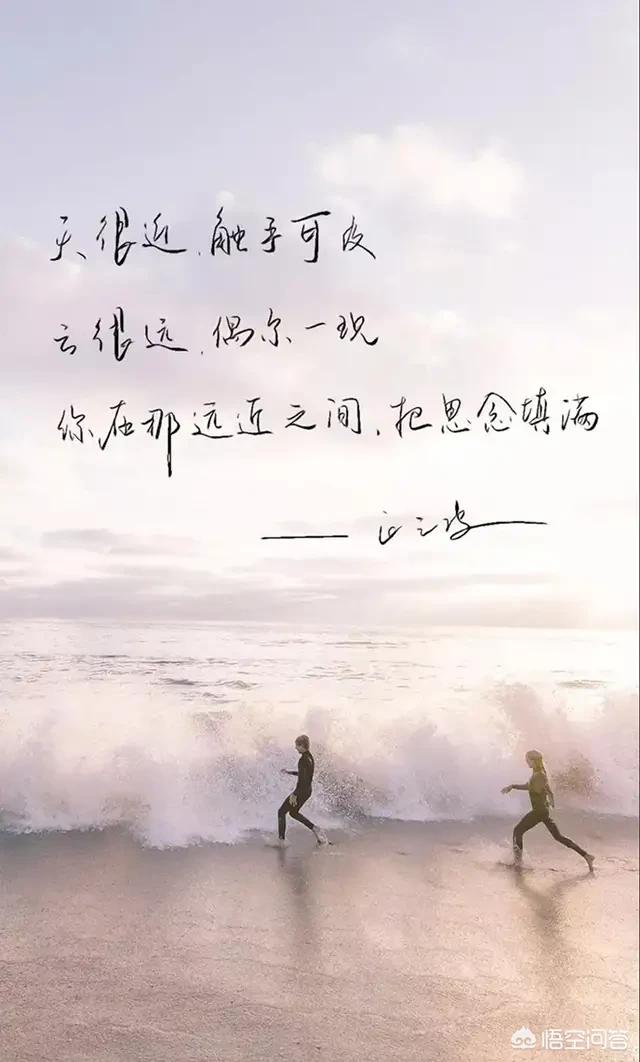 天很近,触手可及
云很远,偶尔一现
你在那远近之间,把思念填满
悟空问答